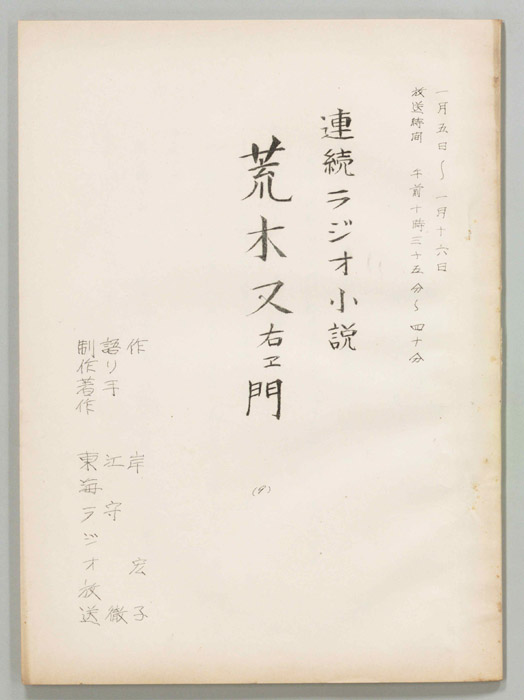 一月五日〜一月十六日
放送時間 午前十時三十五分〜四十分
連続ラジオ小説
荒木又右ヱ門
(9)
作 岸宏子
語り手 江守徹
制作著作 東海ラジオ放送